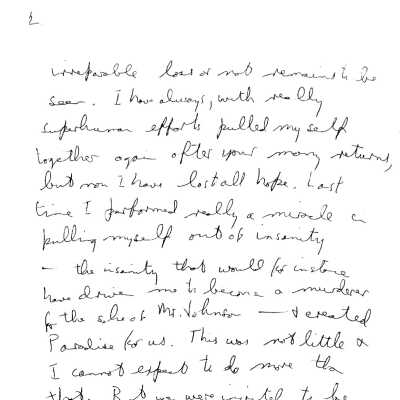 2
irreparable loss or not remains to be
seen. I have always, with really
superhuman efforts pulled myself
together again after your many returns,
but now I have lost all hope. Last
time I performed really a miracle in
pulling myself out of insanity
– the insanity that would for instance
have driven me to become a murderer
for the sake of Mr. Johnson — & created
Paradise for us. This was not little &
I cannot expect to do more than
that. But we were invited to be